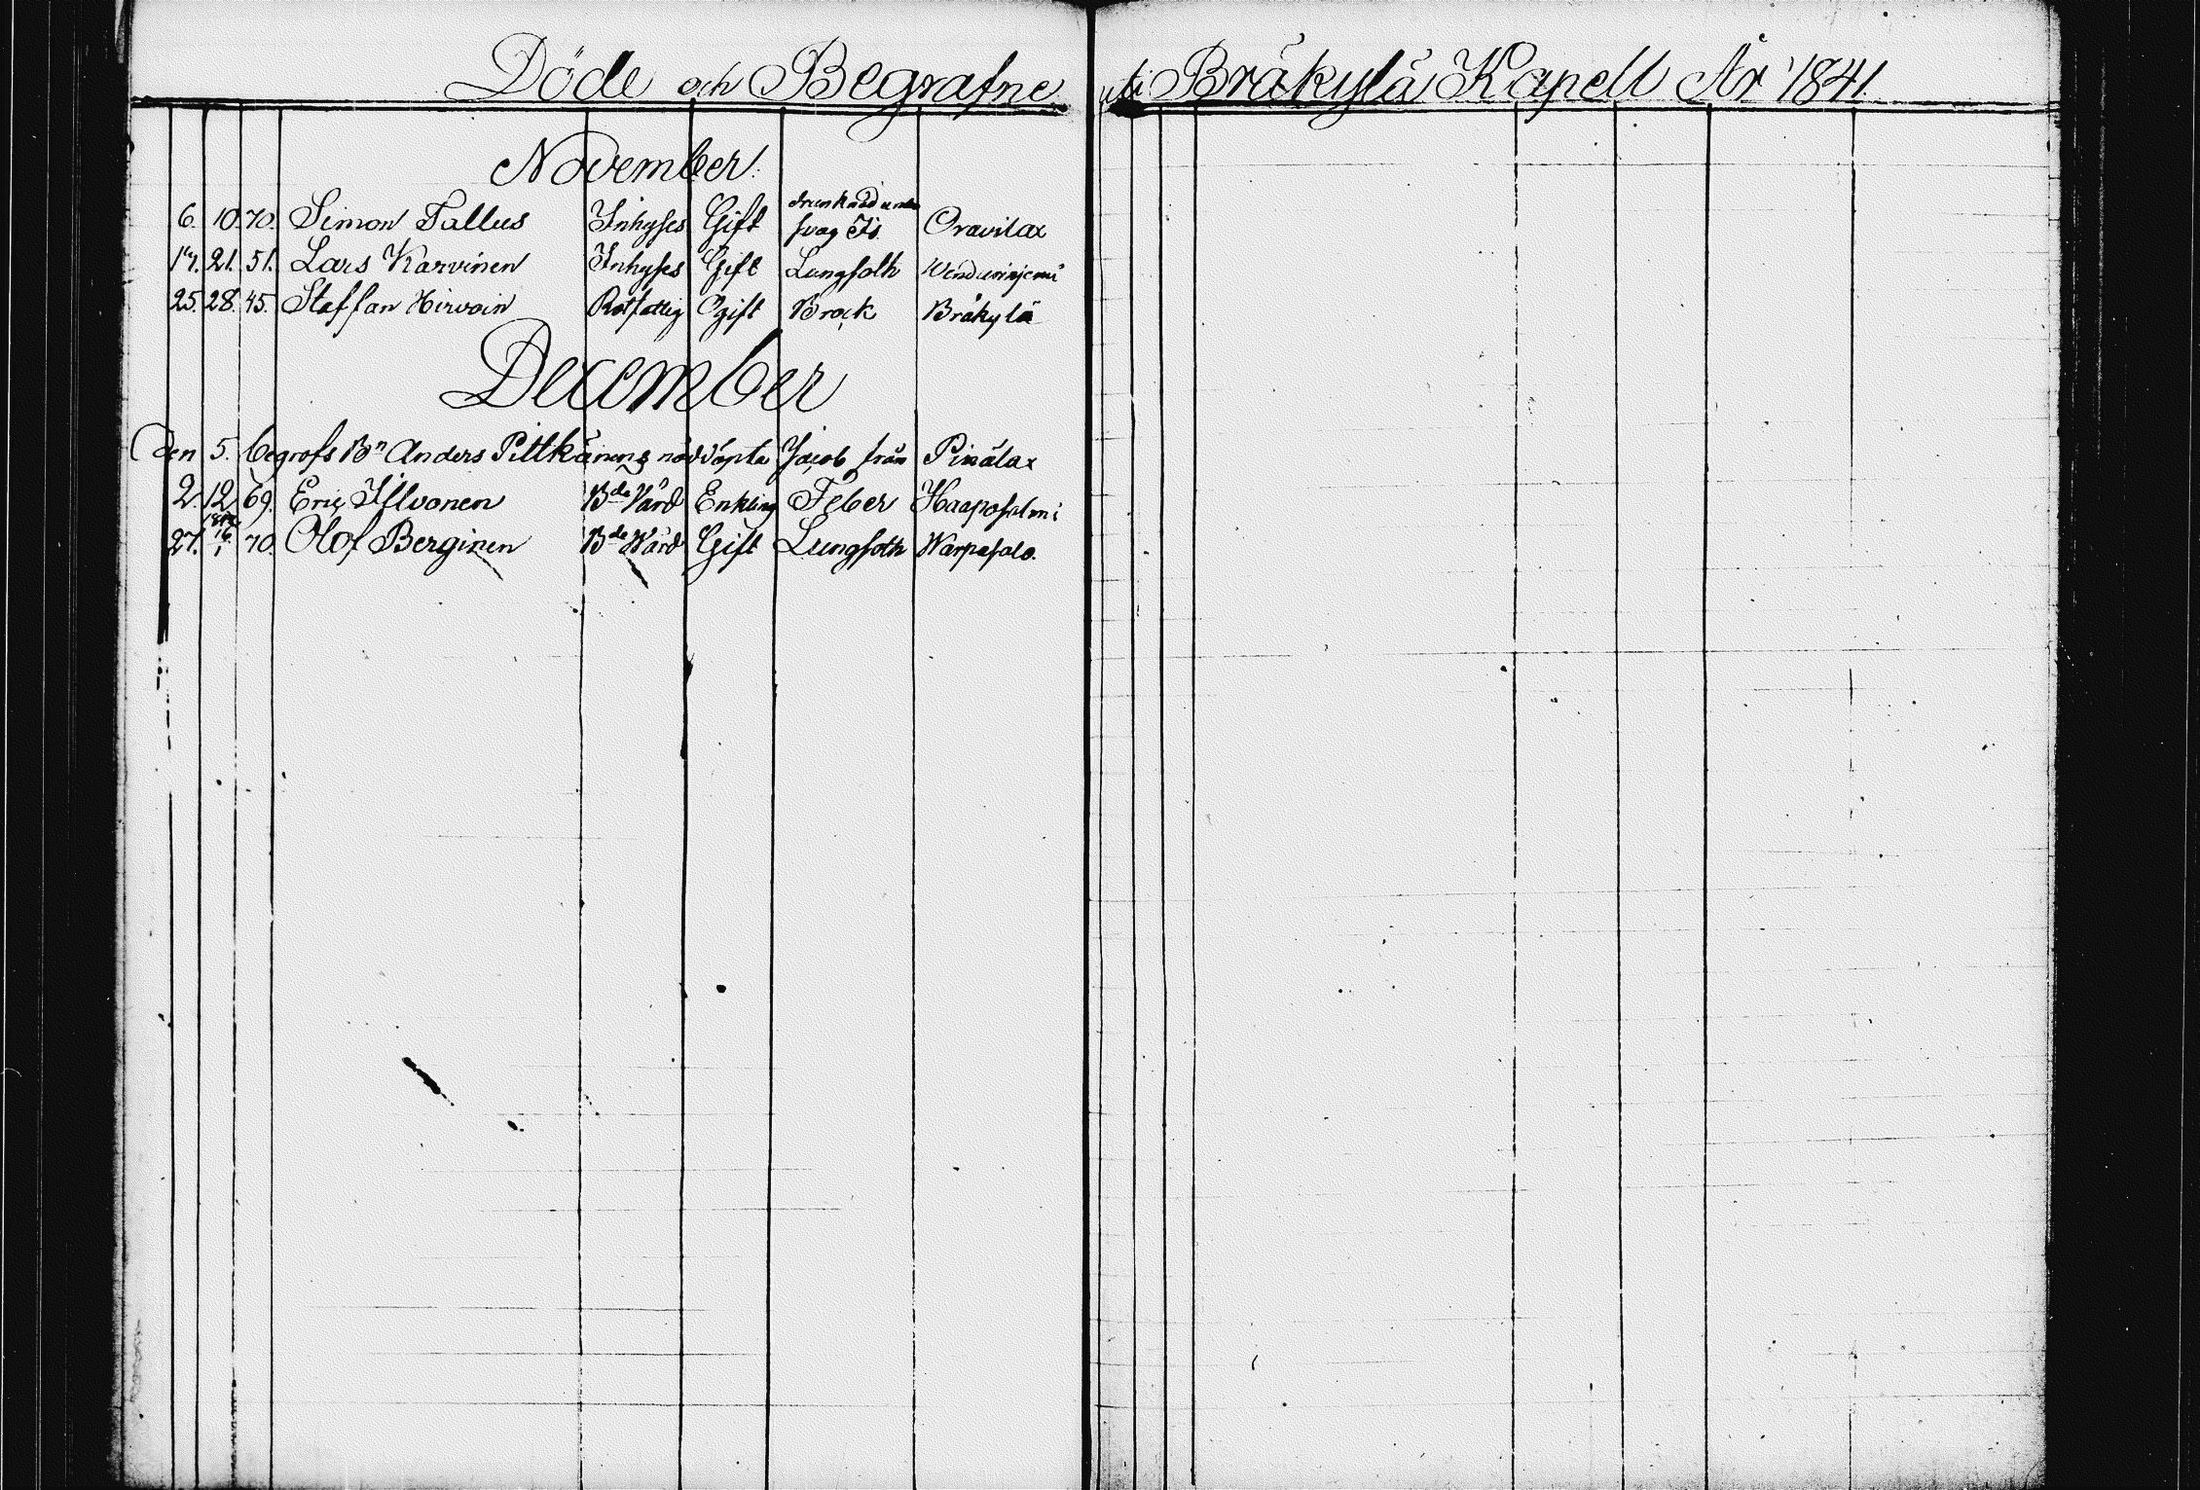 Döde och Begrafne uti Bräkylä Kapell År 1841.
November.
6. 10. 70. Simon Tallus Inhyses Gift drunknad under svag Is. Oravilax
17. 21. 51. Lars Karvinen Inhyses Gift Lungsoth Wenduniejemi
25. 28. 45. Staffan Hirvoin Rotfattig Ogift Brock Bräkylä
December
Den 5. begrofs Bn Anders Pittkänens nöddöpta Jacob från Pinälax
2. 12. 69. Eric Ilvonen Bde Värd Enkling Feber Haaposalmi
27. 16/1 70. Olof Berginen Bde Wärd Gift Lungsoth Warpasalo.